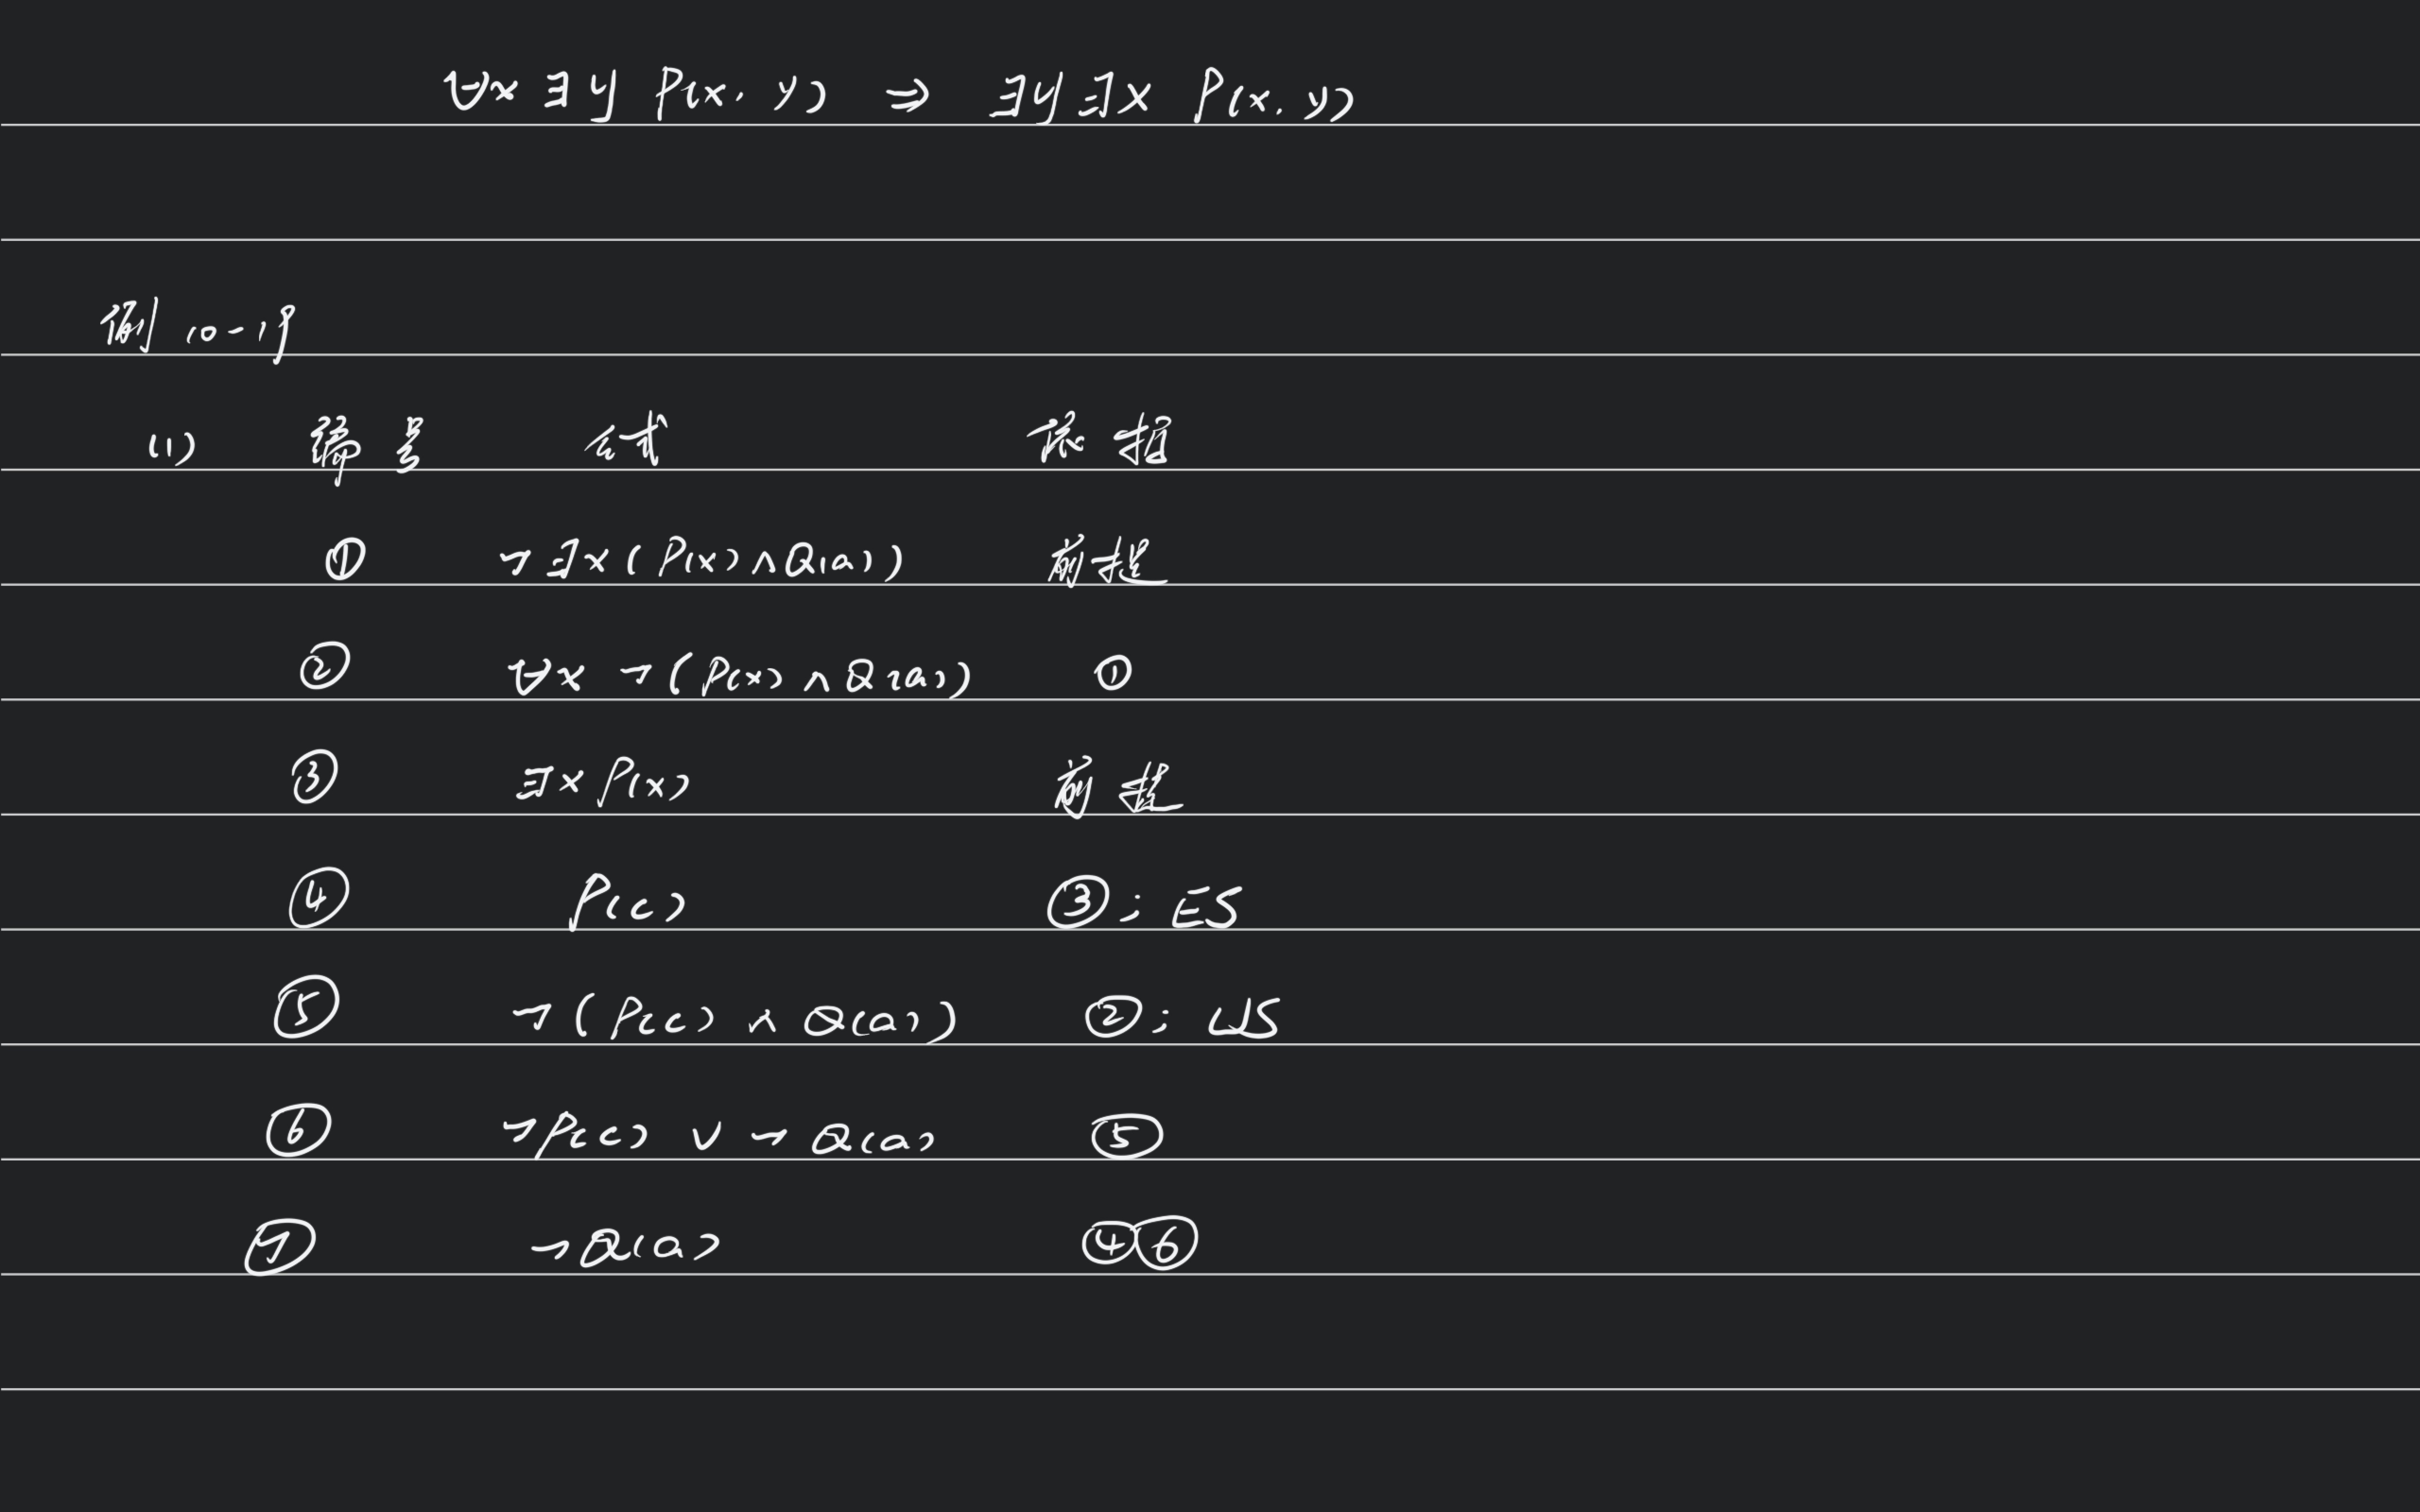 ∀x ∃y P(x, y) ⇒ ∃y ∃x P(x, y)
例 10-19
(1) 编号 公式 依据
① ¬∃x(P(x) ∧ Q(a)) 前提
② ∀x ¬(P(x) ∧ Q(a)) ①
③ ∃x P(x) 前提
④ P(c) ③; ES
⑤ ¬(P(c) ∧ Q(a)) ②; US
⑥ ¬P(c) ∨ ¬Q(a) ⑤
⑦ ¬Q(a) ④⑥